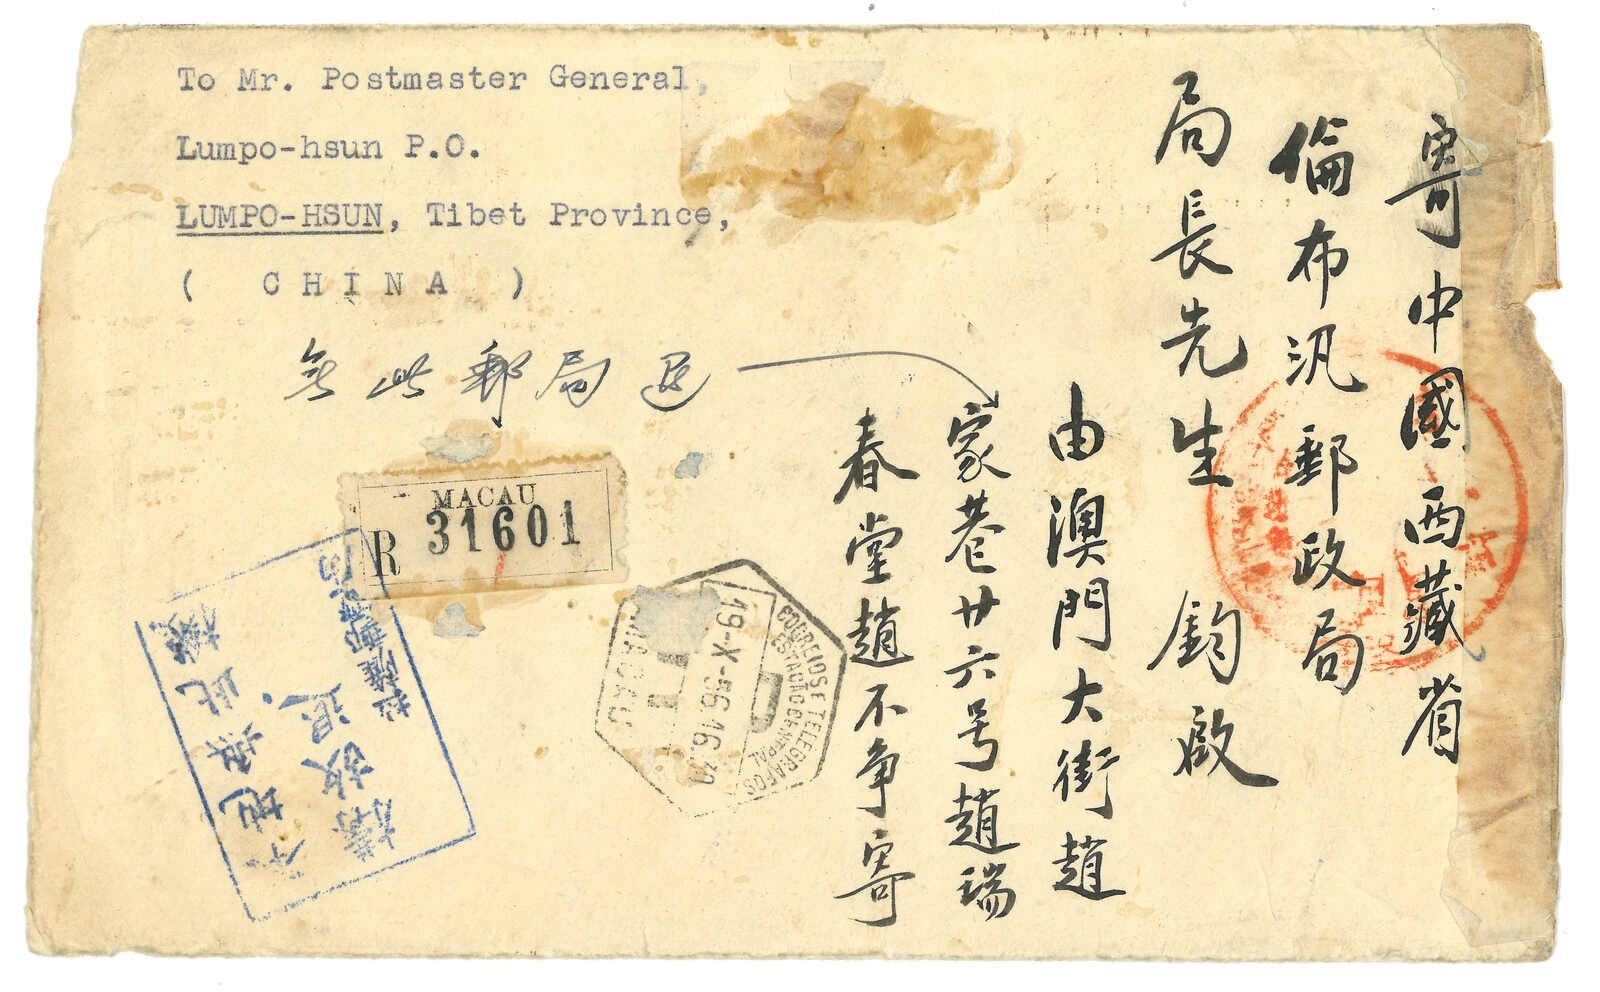 To Mr. Postmaster General,
Lumpo-hsun P.O.
LUMPO-HSUN, Tibet Province,
( CHINA )
寄中國西藏省
倫布汛郵政局
局長先生 鈞啟
由澳門大街趙
家巷廿六号趙瑞
春堂趙不争寄
無此郵局退
MACAU
R 31601
CORREIOS E TELEGRAFOS
ESTAÇÃO CENTRAL
19-X-56.16.30
MACAU
本地無此機
構故退